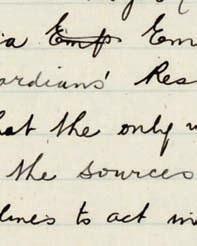 ia Emp Em
ardians' Res
hat the only
the sources
lines to act in